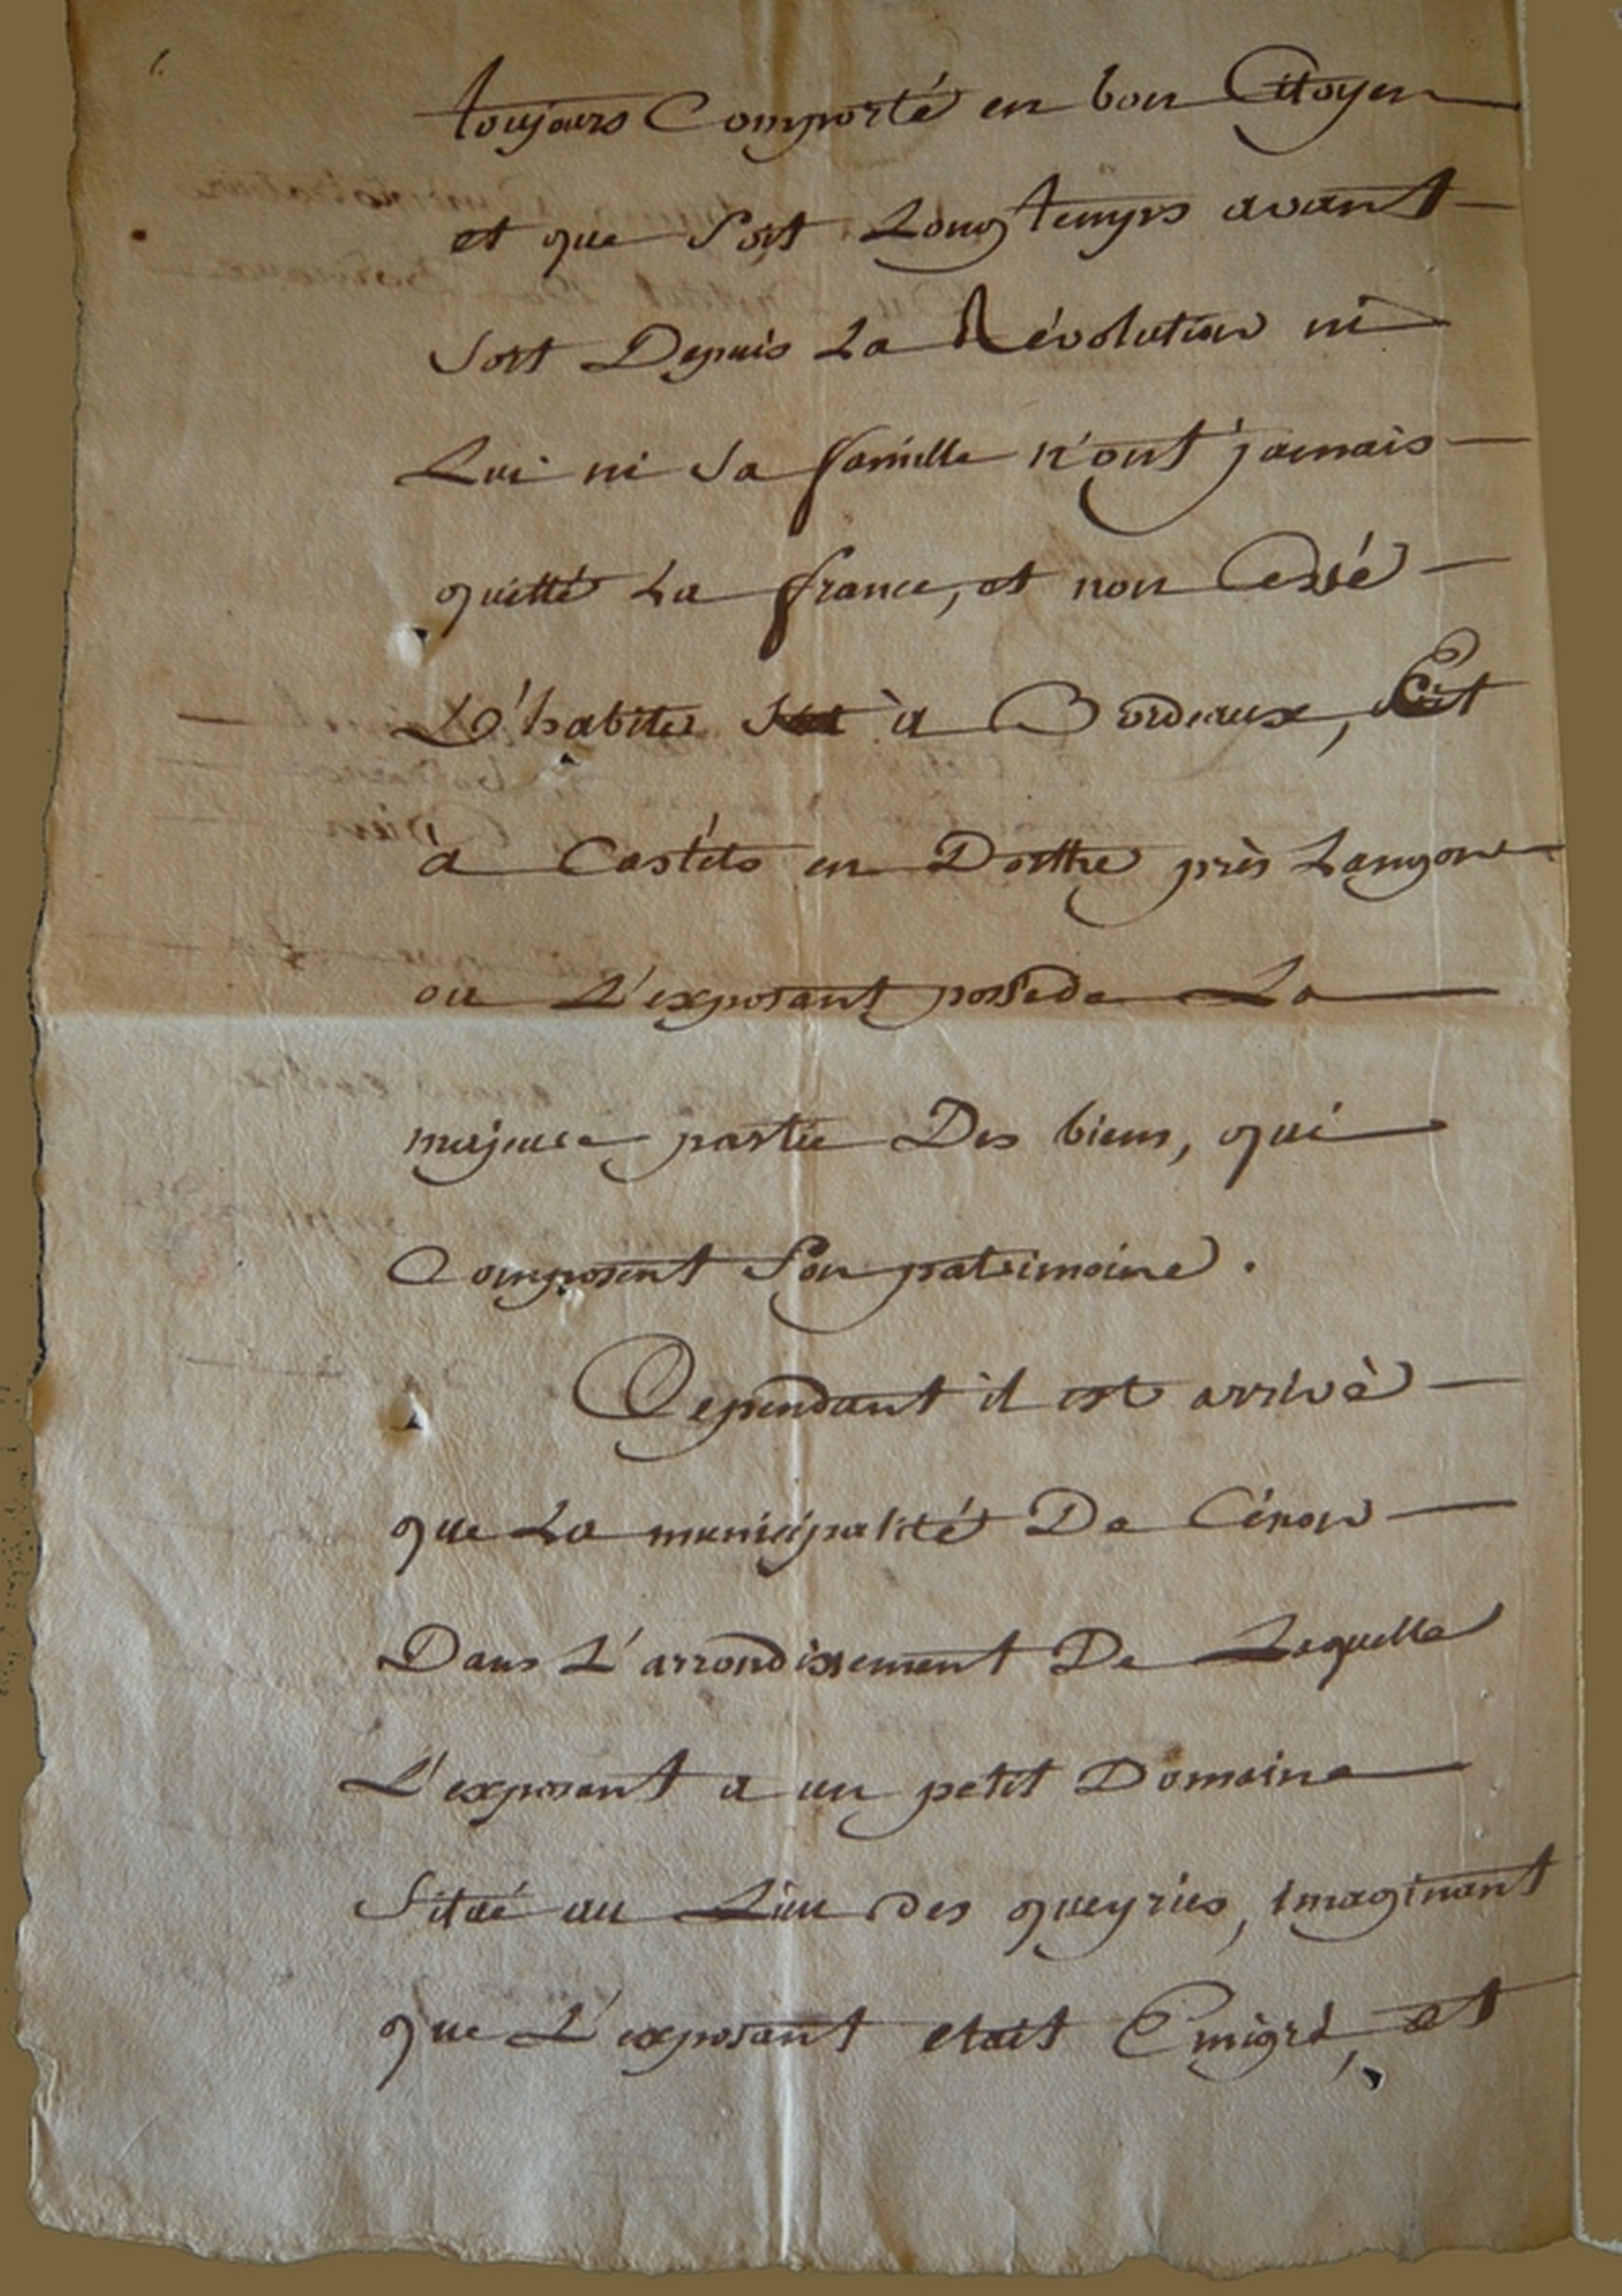 toujours Comporté en bon Citoyen
et que Soit Longtemps avant
Soit Depuis La Révolution ni
Lui ni Sa famille n'ont jamais
quitté La france, et non Cessé
D'habiter à Bordeaux, Et
a Castéts en Dorthe près Langon
ou L'exposant possede La
majeure partie Des biens, qui
Composent Son patrimoine.
Cependant il est arrivé
que La municipalité De Cénon
Dans L'arrondissement De Laquelle
L'exposant a un petit Domaine
Situé au Lieu Des queyries, imaginant
que L'exposant etait Emigré, et